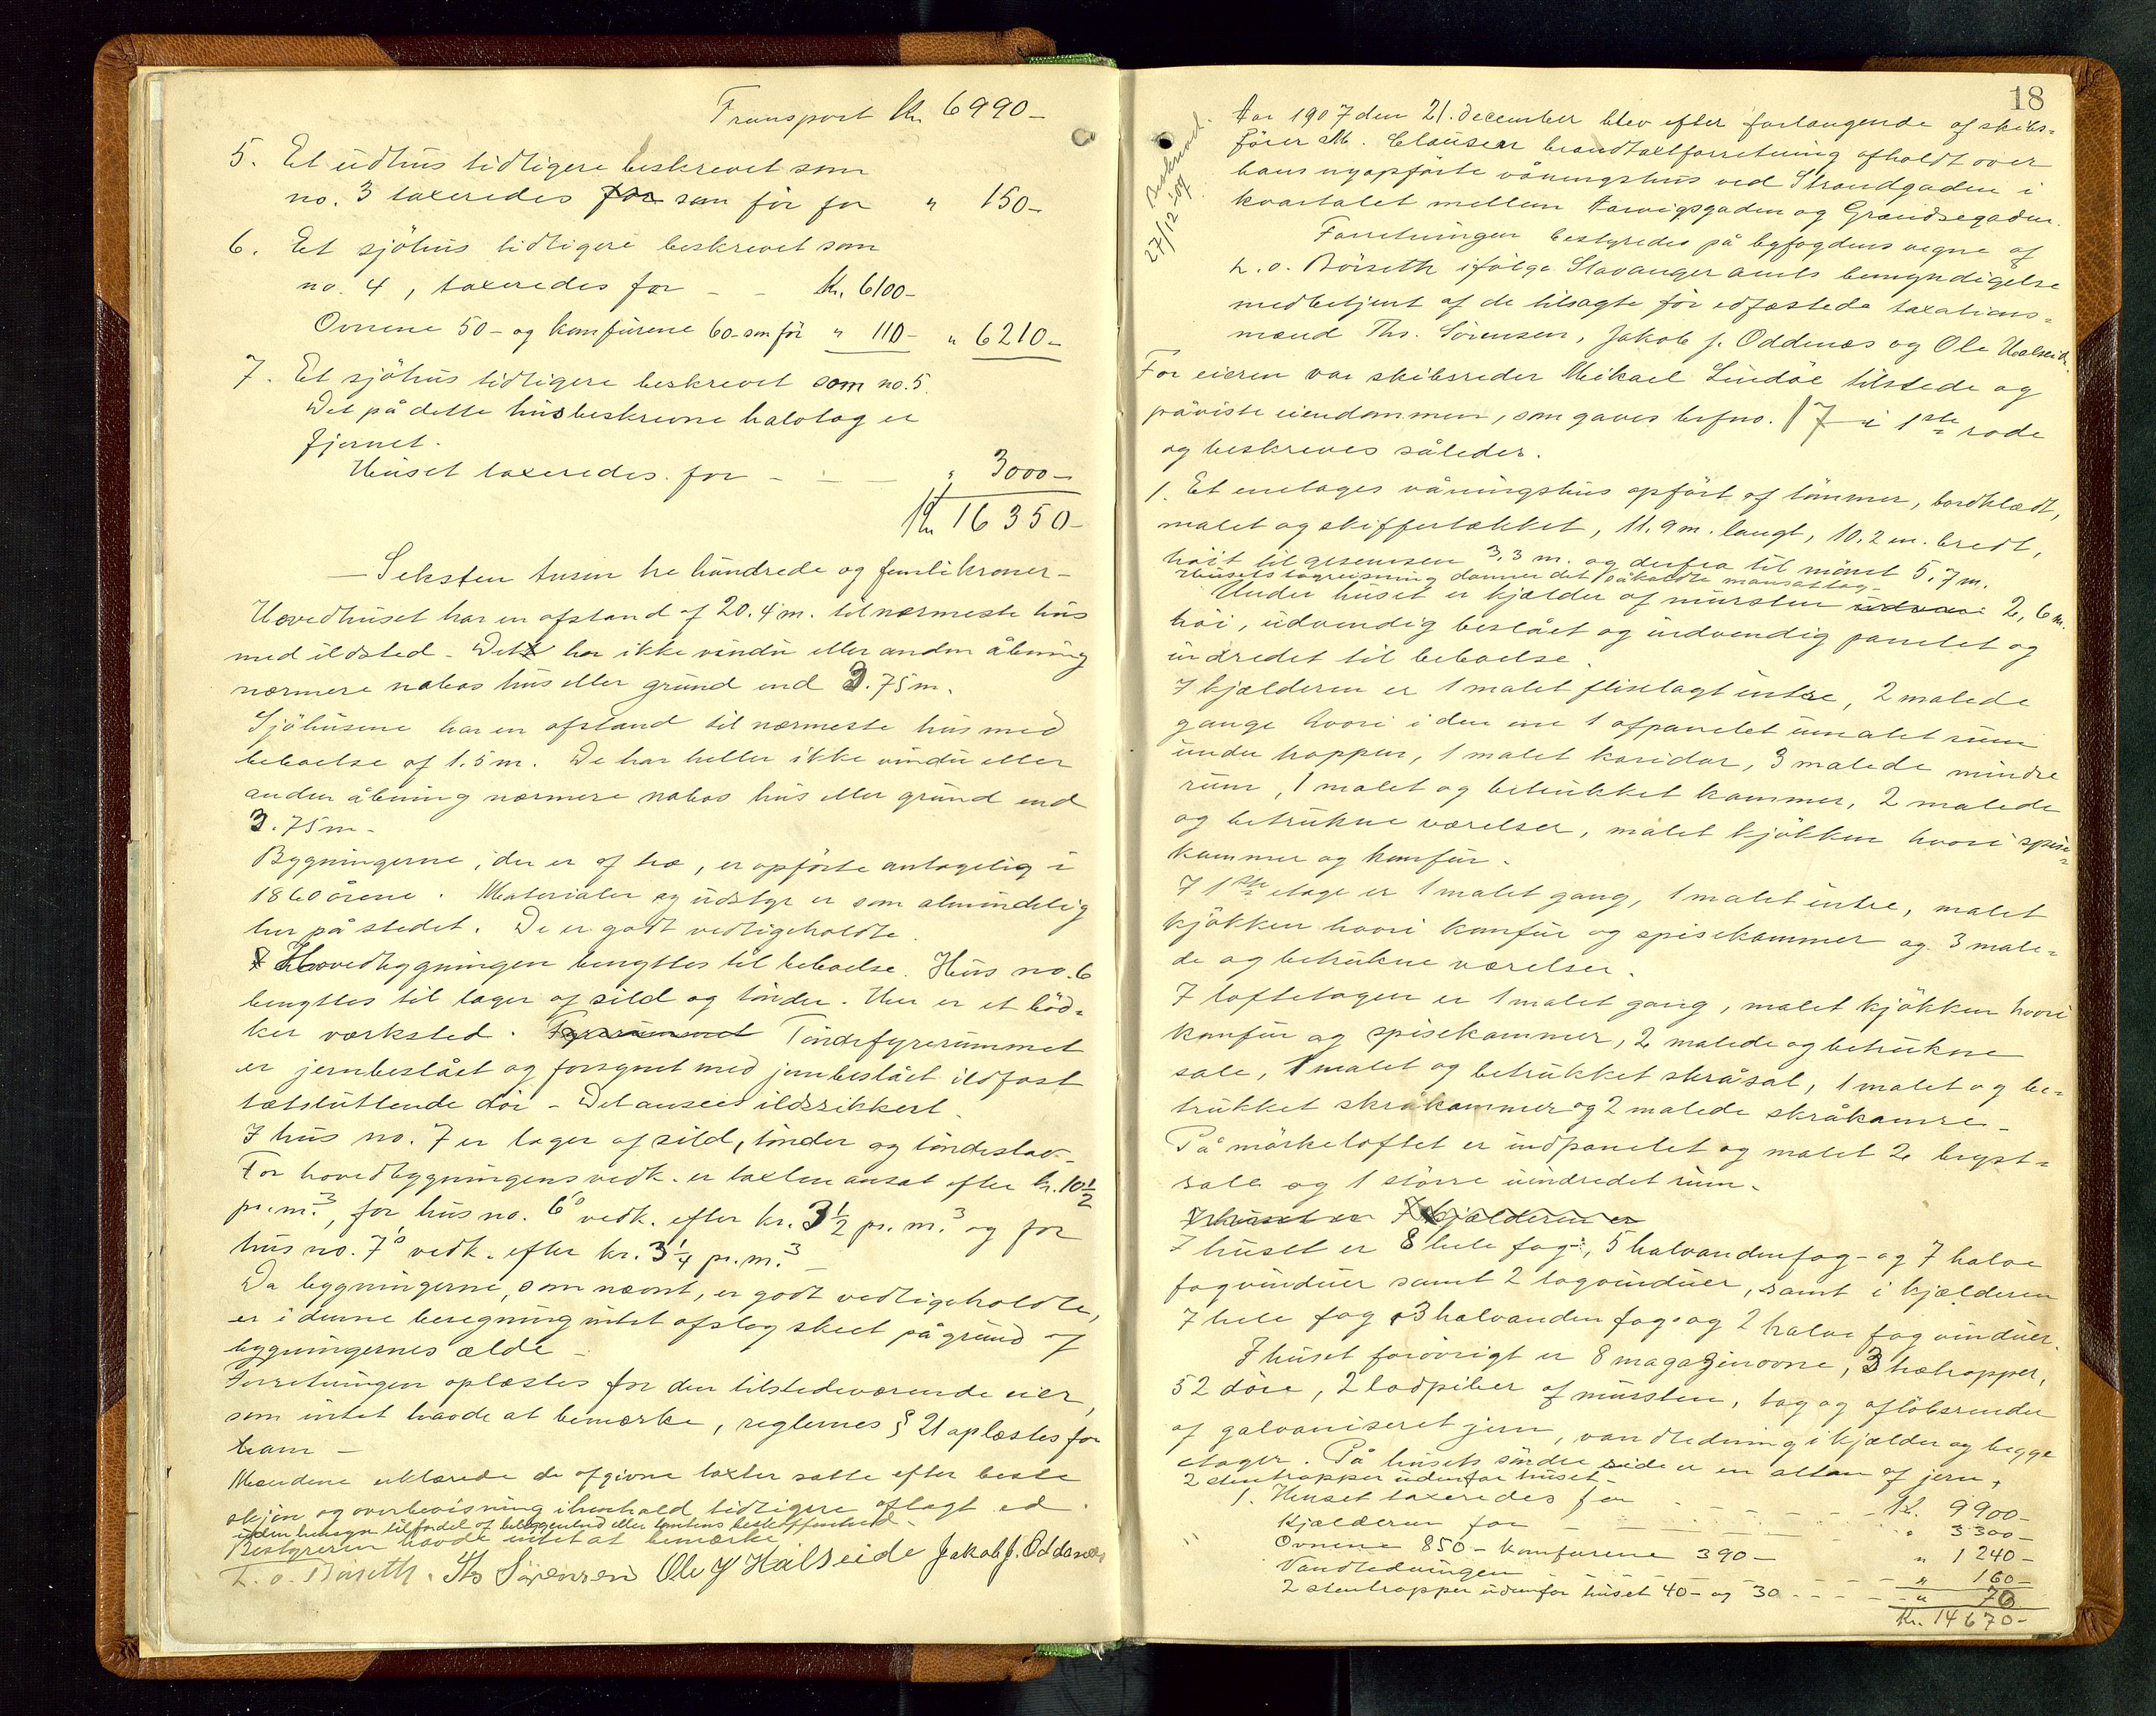 Transport Kr. 6990-
5. Et udhus tidligere beskrevet som
no. 3 taxeredes for som før for " 150-
6. Et sjøhus tidligere beskrevet som
no. 4, taxeredes for - - Kr. 6100-
Ovnene 50- og komfurene 60- som før " 110- " 6210-
7. Et sjøhus tidligere beskrevet som no. 5.
Det på dette hus beskrevne halvtag er
fjernet.
Huset taxeredes for - - - " 3000-
Kr 16350-
- Seksten tusen tre hundrede og femti kroner -
Hovedhuset har en afstand af 20.4 m. til nærmeste hus
med ildsted - Det har ikke vindu eller anden åbning
nærmere nabos hus eller grund end 3.75 m.
Sjøhusene har en afstand til nærmeste hus med
beboelse af 1.5 m. De har heller ikke vindu eller
anden åbning nærmere nabos hus eller grund end
3.75 m -
Bygningerne, der er af træ, er opførte antagelig i
1860 årene. Materialer og udstyr er som almindelig
her på stedet. De er godt vedligeholdte.
Hovedbygningen benyttes til beboelse. Hus no. 6
benyttes til lager af sild og tønder. Her er et bød-
ker værksted. Tøndefyrerummet
er jernbeslået og forsynet med jernbeslået ildfast
tætsluttende dør - Det ansees ildssikkert.
I hus no. 7 er lager af sild, tønder og tøndestav -
For hovedbygningens vedk. er taxten ansat efter kr. 10½
pr. m.³, for hus no. 6's vedk. efter kr. 3½ pr. m.³ og for
hus no. 7's vedk. efter kr. 3¼ pr. m.³ -
Da bygningerne, som nævnt, er godt vedligeholdte,
er i denne beregning intet afslag skeet på grund af
bygningernes ælde -
Forretningen oplæstes for den tilstedeværende eier,
som intet havde at bemærke, reglernes § 21 oplæstes for
ham -
Mændene erklærede de afgivne taxter satte efter beste
skjøn og overbevisning i henhold tidligere aflagt ed.
uden hensyn til fordel af beliggenhed eller tomtens beskaffenhed -
Bestyreren havde intet at bemærke
L. O. Børseth. Ths Sørensen Ole J Halseide Jakob J. Oddenæs
18
Beskrevet.
27/12-07
Aar 1907 den 21. december blev efter forlangende af skibs-
fører M. Clausen brandtaxtforretning afholdt over
hans nyopførte våningshus ved Strandgaden i
kvartalet mellem Karvigsgaden og Grændsegaden.
Forretningen bestyredes på byfogdens vegne af
L. O. Børseth ifølge Stavanger amts bemyndigelse
medbetjent af de tilsagte før edfæstede taxations-
mænd Ths. Sørensen, Jakob J. Oddenæs og Ole Halseide.
For eieren var skibsreder Mikael Lindøe tilstede og
påviste eiendommen, som gaves brfno. 17 i 1ste rode
og beskreves således.
1. Et enetages våningshus opført af tømmer, bordklædt,
malet og skiffertækket, 11.9 m. langt, 10.2 m. bredt,
høit til gesemsen 3.3 m. og derfra til mønet 5.7 m.
Husets tagreisning danner det såkaldte mansattag -
Under huset er kjælder af mursten 2,6 m.
høi, udvendig beslået og indvendig panelet og
indredet til beboelse.
I kjælderen er 1 malet fliselagt entre, 2 malede
gange hvori i den ene 1 afpanelet umalet rum
under trappen, 1 malet koridor, 3 malede mindre
rum, 1 malet og betrukket kammer, 2 malede
og betrukne værelser, malet kjøkken hvori spise-
kammer og komfur.
I 1ste etage er 1 malet gang, 1 malet entre, malet
kjøkken hvori komfur og spisekammer og 3 male-
de og betrukne værelser.
I loftetagen er 1 malet gang, malet kjøkken hvori
komfur og spisekammer, 2 malede og betrukne
sale, 1 malet og betrukket skråsal, 1 malet og be-
trukket skråkammer og 2 malede skråkamre -
På mørkeloftet er indpanelet og malet 2 kvist-
sale og 1 større uindredet rum -
I huset er I kjælderen er
I huset er 8 hele fag-, 5 halvandenfag- og 7 halve
fagvinduer samt 2 tagvinduer, samt i kjælderen
7 hele fag, 3 halvanden fag- og 2 halve fag vinduer.
I huset forøvrigt er 8 magazinovne, 3 trætrapper,
52 døre, 2 ladpiber af mursten, tag og afløbsrender
af galvaniseret jern, vandledning i kjælder og begge
etager. På husets søndre side er en altan af jern,
2 stentrapper udenfor huset -
1. Huset taxeredes for - - - Kr. 9900-
Kjælderen for - - - " 3300-
Ovnene 850- komfurene 390- " 1240-
Vandledningen - - - " 160-
2 stentrapper udenfor huset 40- og 30 - - - " 70
Kr. 14670-